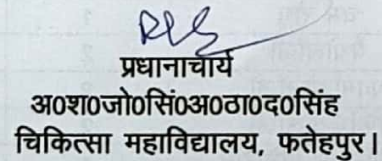 प्रधानाचार्य
अ0श0जो0सिं0अ0ठा0द0सिंह
चिकित्सा महाविद्यालय, फतेहपुर।